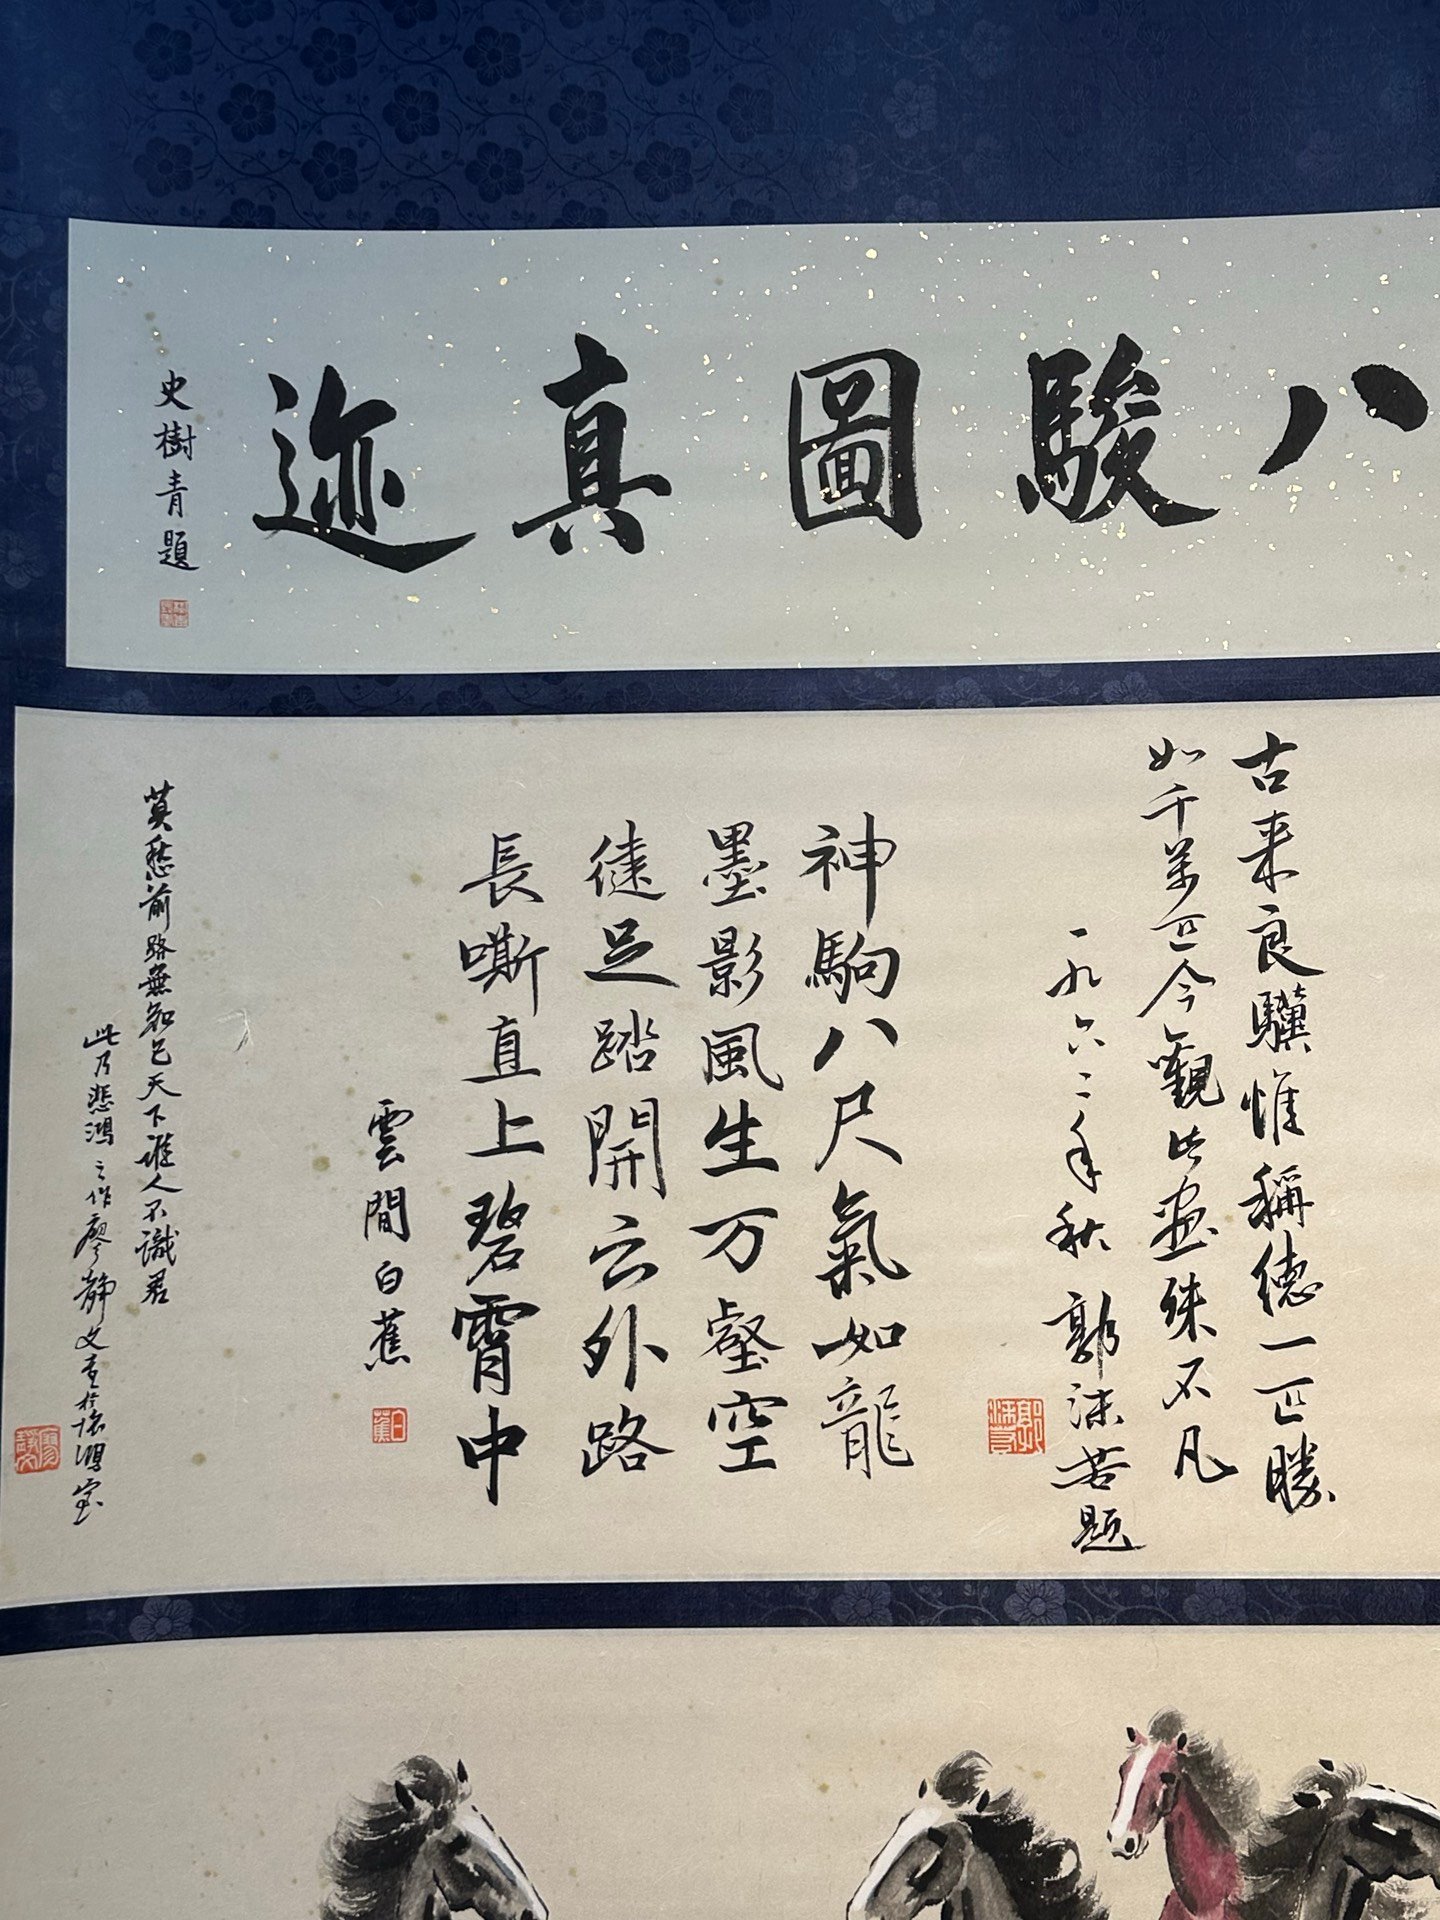 八駿圖真迹
史樹青題
古来良驥惟稱德一匹勝
如千萬匹今觀此画殊不凡
一九六二年秋郭沫若題
郭沫若
神駒八尺氣如龍
墨影風生万壑空
健足踏開云外路
長嘶直上碧霄中
雲間白蕉
白蕉
莫愁前路無知己天下誰人不識君
此乃悲鴻之作廖静文於悲鴻室
廖靜文